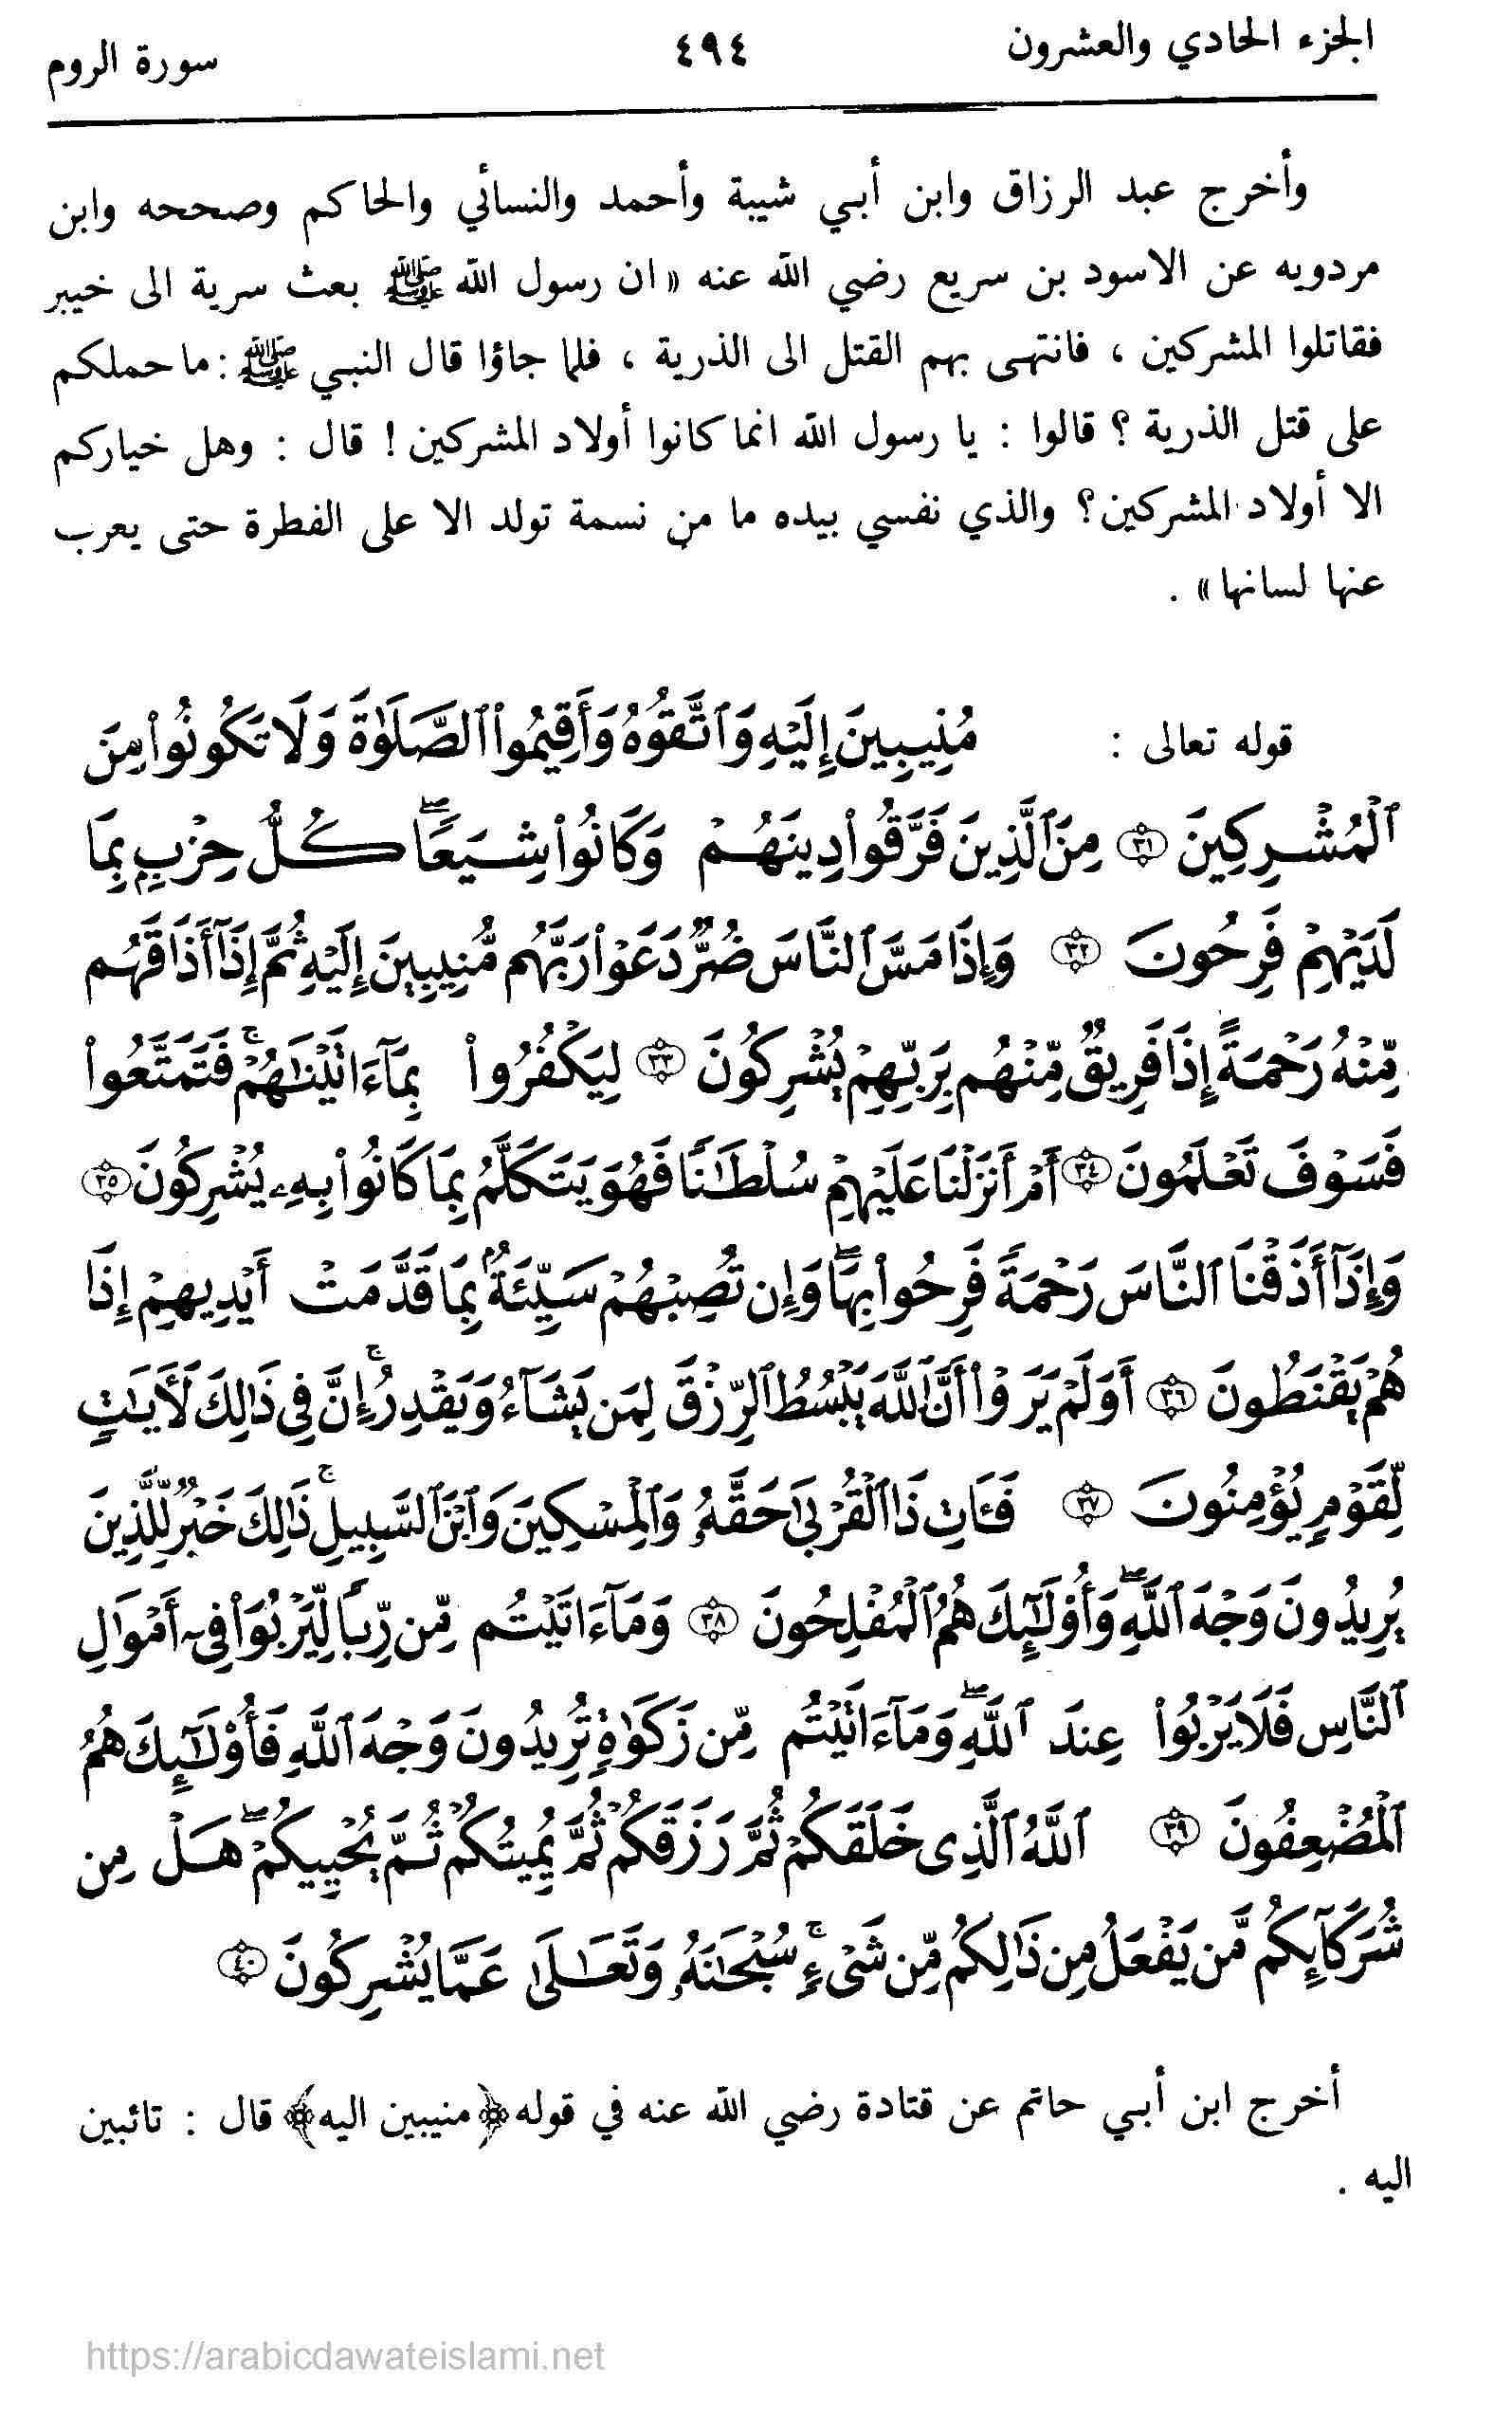 الجزء الحادي والعشرون ٤٩٤ سورة الروم
وأخرج عبد الرزاق وابن أبي شيبة وأحمد والنسائي والحاكم وصححه وابن
مردويه عن الاسود بن سريع رضي الله عنه « ان رسول الله ﷺ بعث سرية الى خيبر
فقاتلوا المشركين ، فانتهى بهم القتل الى الذرية ، فلما جاؤا قال النبي ﷺ : ما حملكم
على قتل الذرية ؟ قالوا : يا رسول الله انما كانوا أولاد المشركين ! قال : وهل خياركم
الا أولاد المشركين ؟ والذي نفسي بيده ما من نسمة تولد الا على الفطرة حتى يعرب
عنها لسانها » .
قوله تعالى : مُنِيبِينَ إِلَيْهِ وَٱتَّقُوهُ وَأَقِيمُوا۟ ٱلصَّلَوٰةَ وَلَا تَكُونُوا۟ مِنَ
ٱلْمُشْرِكِينَ ٣١ مِنَ ٱلَّذِينَ فَرَّقُوا۟ دِينَهُمْ وَكَانُوا۟ شِيَعًا ۖ كُلُّ حِزْبٍۭ بِمَا
لَدَيْهِمْ فَرِحُونَ ٣٢ وَإِذَا مَسَّ ٱلنَّاسَ ضُرٌّ دَعَوْا۟ رَبَّهُم مُّنِيبِينَ إِلَيْهِ ثُمَّ إِذَآ أَذَاقَهُم
مِّنْهُ رَحْمَةً إِذَا فَرِيقٌ مِّنْهُم بِرَبِّهِمْ يُشْرِكُونَ ٣٣ لِيَكْفُرُوا۟ بِمَآ ءَاتَيْنَٰهُمْ ۚ فَتَمَتَّعُوا۟
فَسَوْفَ تَعْلَمُونَ ٣٤ أَمْ أَنزَلْنَا عَلَيْهِمْ سُلْطَٰنًا فَهُوَ يَتَكَلَّمُ بِمَا كَانُوا۟ بِهِۦ يُشْرِكُونَ ٣٥
وَإِذَآ أَذَقْنَا ٱلنَّاسَ رَحْمَةً فَرِحُوا۟ بِهَا ۖ وَإِن تُصِبْهُمْ سَيِّئَةٌۢ بِمَا قَدَّمَتْ أَيْدِيهِمْ إِذَا
هُمْ يَقْنَطُونَ ٣٦ أَوَلَمْ يَرَوْا۟ أَنَّ ٱللَّهَ يَبْسُطُ ٱلرِّزْقَ لِمَن يَشَآءُ وَيَقْدِرُ ۚ إِنَّ فِى ذَٰلِكَ لَءَايَٰتٍ
لِّقَوْمٍ يُؤْمِنُونَ ٣٧ فَـَٔاتِ ذَا ٱلْقُرْبَىٰ حَقَّهُۥ وَٱلْمِسْكِينَ وَٱبْنَ ٱلسَّبِيلِ ۚ ذَٰلِكَ خَيْرٌ لِّلَّذِينَ
يُرِيدُونَ وَجْهَ ٱللَّهِ ۖ وَأُو۟لَٰٓئِكَ هُمُ ٱلْمُفْلِحُونَ ٣٨ وَمَآ ءَاتَيْتُم مِّن رِّبًا لِّيَرْبُوَا۟ فِىٓ أَمْوَٰلِ
ٱلنَّاسِ فَلَا يَرْبُوا۟ عِندَ ٱللَّهِ ۖ وَمَآ ءَاتَيْتُم مِّن زَكَوٰةٍ تُرِيدُونَ وَجْهَ ٱللَّهِ فَأُو۟لَٰٓئِكَ هُمُ
ٱلْمُضْعِفُونَ ٣٩ ٱللَّهُ ٱلَّذِى خَلَقَكُمْ ثُمَّ رَزَقَكُمْ ثُمَّ يُمِيتُكُمْ ثُمَّ يُحْيِيكُمْ ۖ هَلْ مِن
شُرَكَآئِكُم مَّن يَفْعَلُ مِن ذَٰلِكُم مِّن شَىْءٍ ۚ سُبْحَٰنَهُۥ وَتَعَٰلَىٰ عَمَّا يُشْرِكُونَ ٤٠
أخرج ابن أبي حاتم عن قتادة رضي الله عنه في قوله ﴿منيبين اليه﴾ قال : تائبين
اليه .
https://arabicdawateislami.net